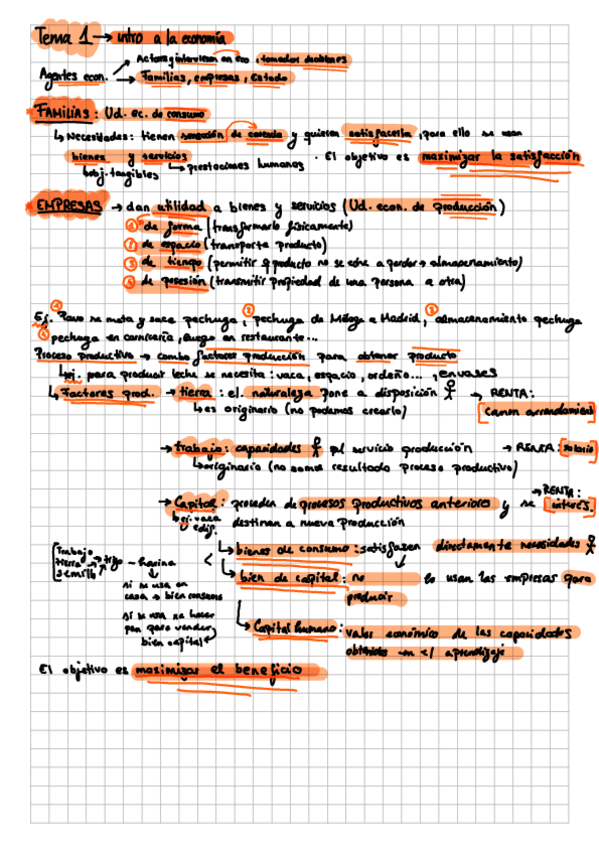 Tema 1 → intro a la economía
Actores q intervienen en eco, tomados decisiones
Agentes econ. → Familias, empresas, Estado
FAMILIAS: Ud. ec. de consumo
↳ Necesidades: tienen sensación de carencia y quieren satisfacerla, para ello se usan
bienes y servicios → prestaciones humanas · El objetivo es maximizar la satisfacción
↳ obj. tangibles
EMPRESAS → dan utilidad a bienes y servicios (Ud. econ. de producción)
① de forma (transformarlo físicamente)
② de espacio (transporta producto)
③ de tiempo (permitir q producto no se eche a perder → almacenamiento)
④ de posesión (transmitir propiedad de una persona a otra)
① ② ③
Ej. Pavo se mata y saca pechuga, pechuga de Málaga a Madrid, almacenamiento pechuga
④ pechuga en carnicería, luego en restaurante...
Proceso productivo → combo factores producción para obtener producto
↳ ej. para producir leche se necesita: vaca, espacio, ordeño..., envases
↳ Factores prod. → tierra: el. naturaleza pone a disposición → RENTA:
↳ es originario (no podemos crearlo) [canon arrendamiento]
→ trabajo: capacidades pal servicio producción → RENTA: [salario]
↳ originario (no somos resultado proceso productivo)
→ RENTA:
→ Capital: proceden de procesos productivos anteriores y se [interés.]
↳ ej. vaca destinan a nueva producción
edif.
↳ bienes de consumo: satisfacen directamente necesidades
Trabajo
tierra → trigo → harina
semilla
↳ bien de capital: no lo usan las empresas para
producir
si se usa en
casa → bien consumo
si se usa para hacer
pan para vender
bien capital
↳ Capital humano: valor económico de las capacidades
obtenidas en el aprendizaje
El objetivo es maximizar el beneficio